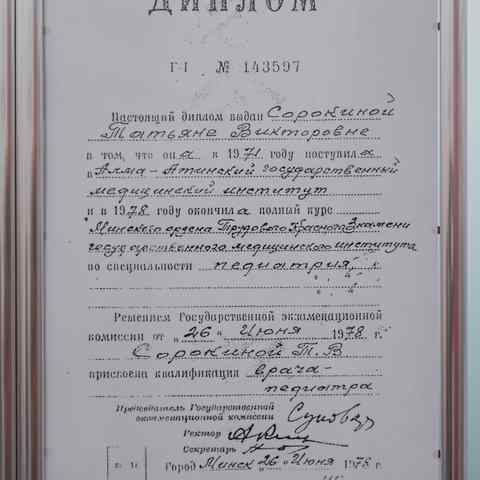 ДИПЛОМ
Г-I № 143597
Настоящий диплом выдан Сорокиной
Татьяне Викторовне
в том, что она в 1971 году поступила
в Алма-Атинский государственный
медицинский институт
и в 1978 году окончила полный курс
Минского ордена Трудового Красного Знамени
государственного медицинского института
по специальности „педиатрия“
Решением Государственной экзаменационной
комиссии от „26“ июня 1978 г.
Сорокиной Т. В
присвоена квалификация врача-
педиатра
Председатель Государственной
экзаменационной комиссии
Ректор
Секретарь
Город Минск „26“ июня 1978 г.